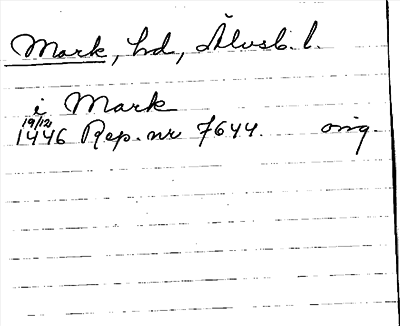 Mark, hd, Älvsb. l.
i Mark
19/12
1446 Rep. nr 7644. orig.